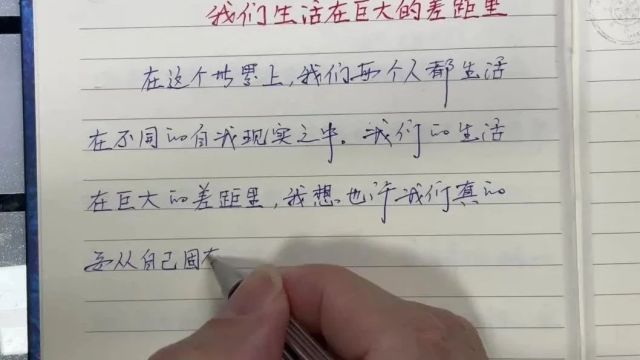 我们生活在巨大的差距里
在这个世界上,我们每个人都生活
在不同的自我现实之中。我们的生活
在巨大的差距里,我想也许我们真的
要从自己固有